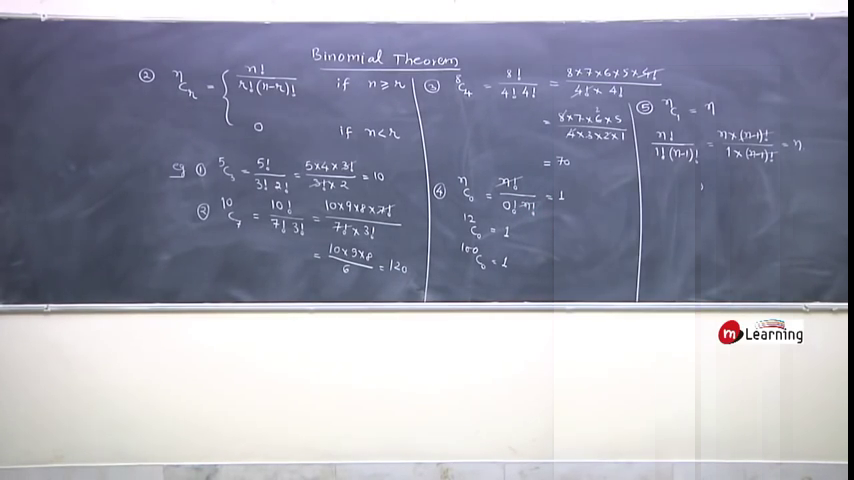 Binomial Theorem
② ⁿCᵣ = { n! / r!(n-r)! if n ≥ r
0 if n < r
eg ① ⁵C₃ = 5! / 3! 2! = 5×4×3! / 3!×2 = 10
② ¹⁰C₇ = 10! / 7! 3! = 10×9×8×7! / 7!×3!
= 10×9×8 / 6 = 120
③ ⁸C₄ = 8! / 4! 4! = 8×7×6×5×4! / 4!×4!
= 8×7×6×5 / 4×3×2×1
= 70
④ ⁿC₀ = n! / 0! n! = 1
¹²C₀ = 1
¹⁰⁰C₀ = 1
⑤ ⁿC₁ = n
n! / 1!(n-1)! = n×(n-1)! / 1×(n-1)! = n
m Learning